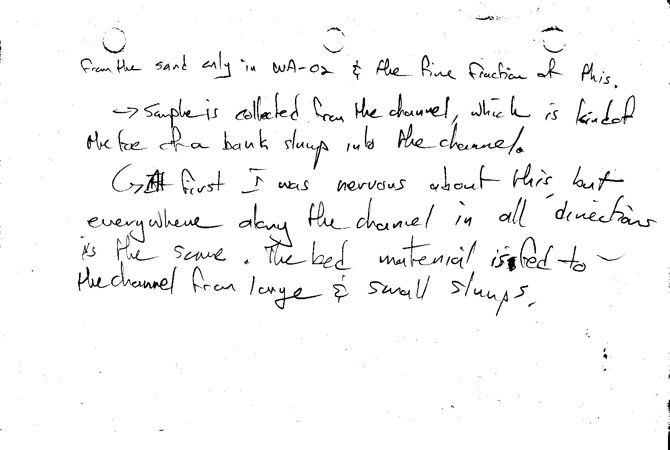 from the sand only in WA-02 & the fine fraction of this.
→ Sample is collected from the channel, which is kind of
the toe of a bank slump into the channel.
↳ At first I was nervous about this, but
everywhere along the channel in all directions
is the same. The bed material is fed to
the channel from large & small slumps.